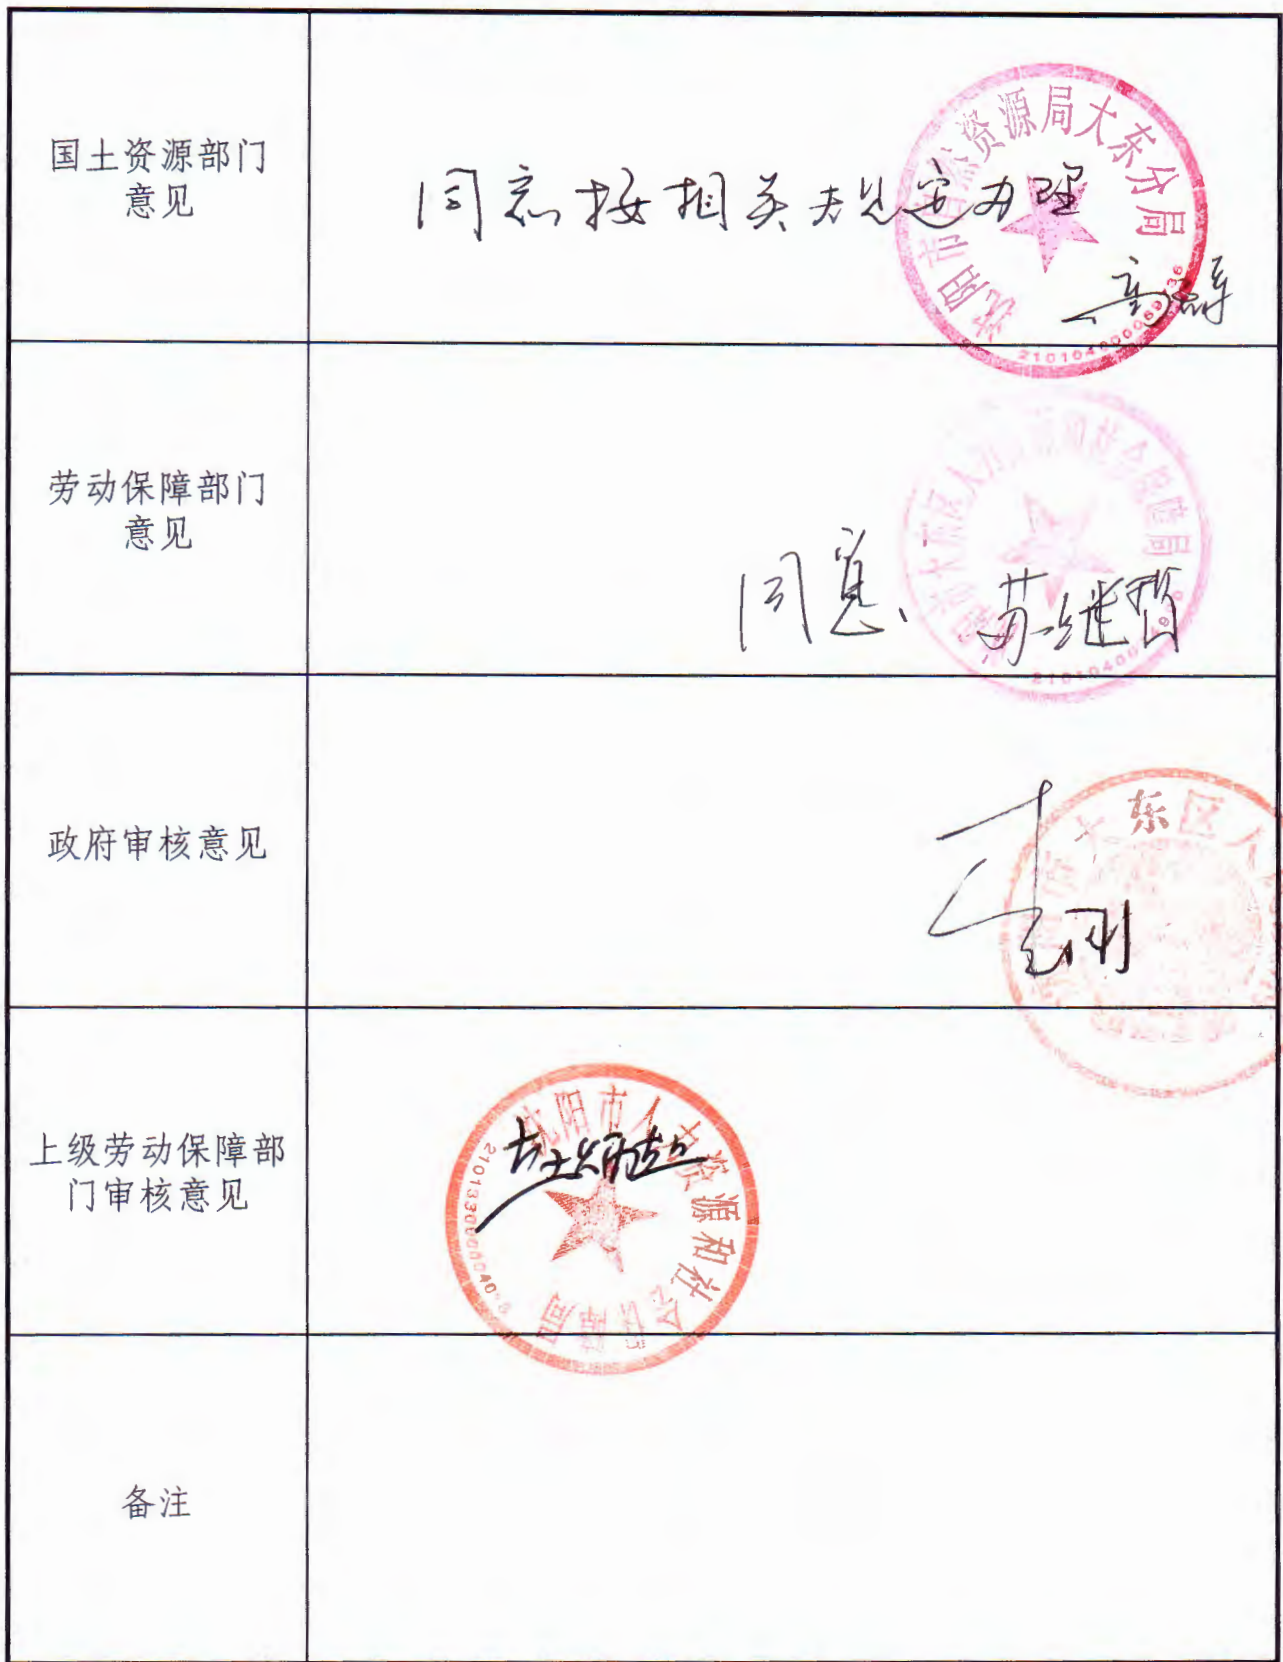 国土资源部门
意见
同意按相关规定办理
沈阳市自然资源局大东分局
劳动保障部门
意见
同意、
苏继哲
沈阳市大东区人力资源和社会保障局
政府审核意见
大东区人
上级劳动保障部
门审核意见
沈阳市人力资源和社会保障局
备注